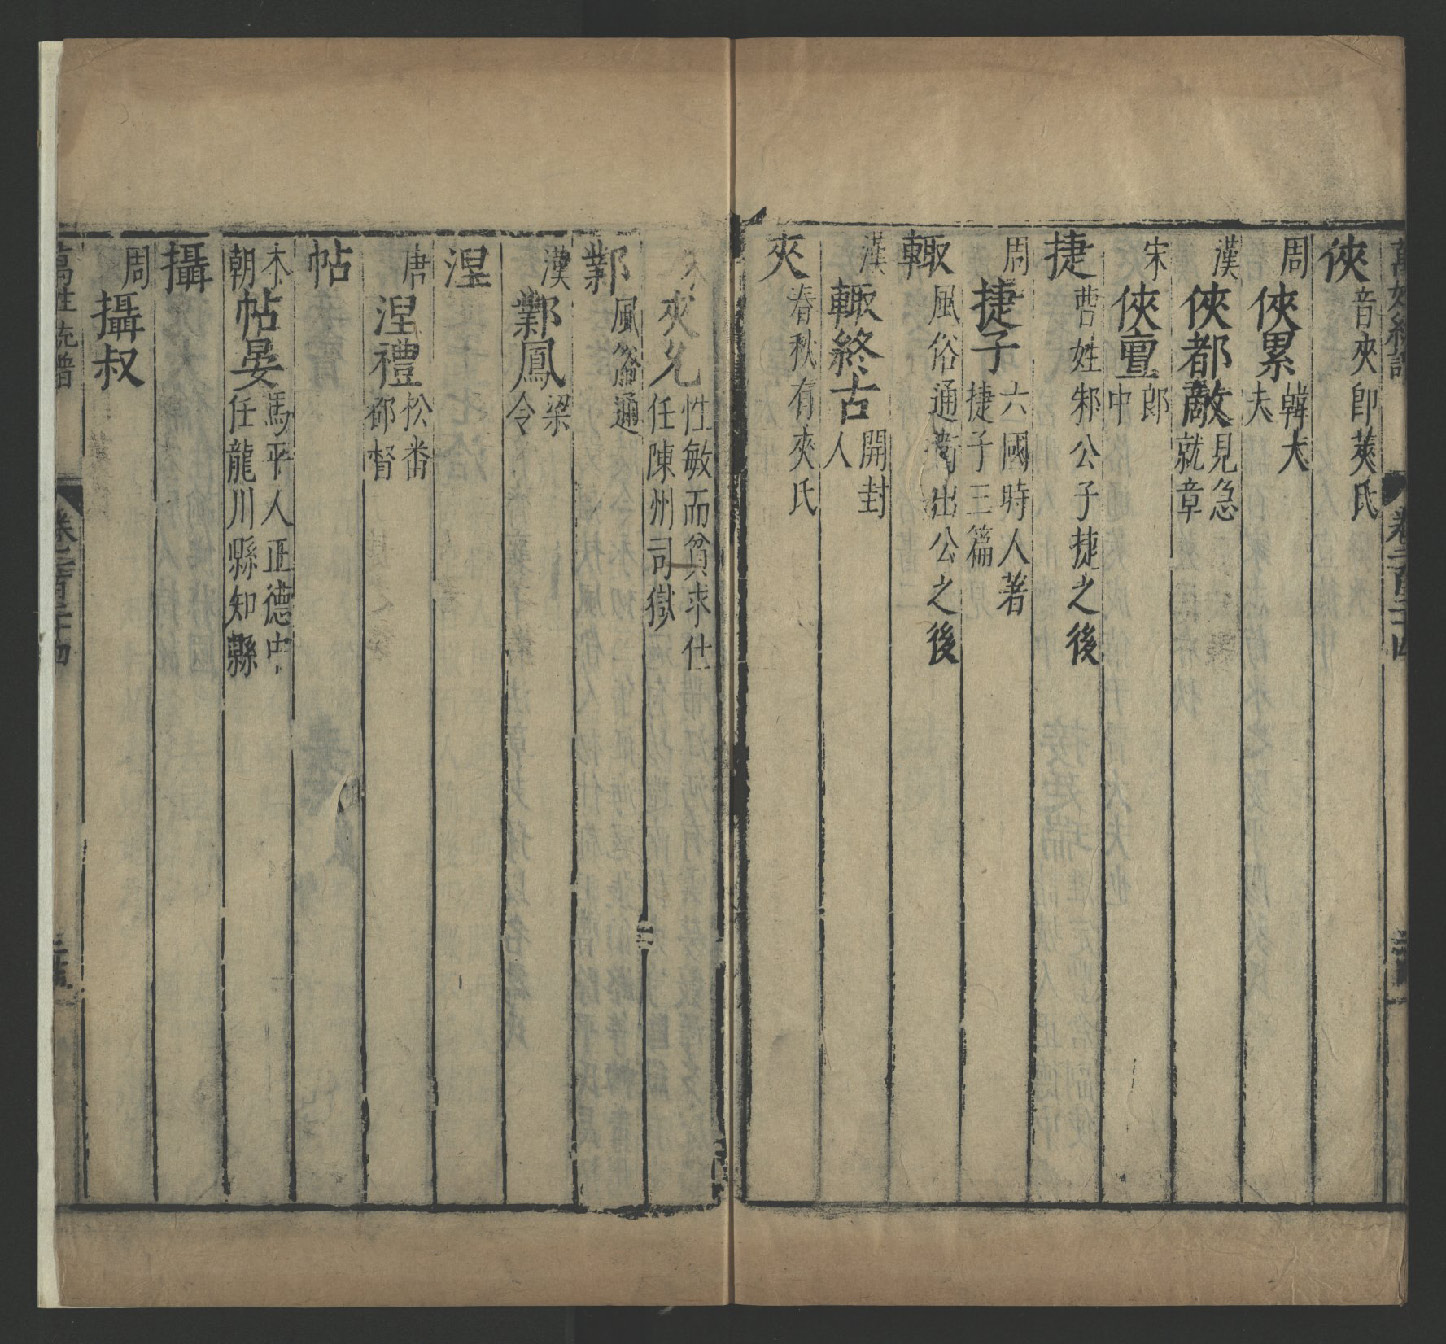 萬姓統譜 卷一百二十四
俠 音夾卽莢氏
周 俠累 韓大夫
漢 俠都敵 見急就章
宋 俠亶 郎中
捷 曹姓邾公子捷之後
周 捷子 六國時人著捷子三篇
輙 風俗通衛出公之後
漢 輙終古 開封人
夾 春秋有夾氏
夾 性敏而貧求仕任陳州司獄
鄴 風俗通
漢 鄴鳳 梁令
湼
唐 湼禮 松番都督
帖
本朝 帖晏 馬平人正德中任龍川縣知縣
攝
周 攝叔
萬姓統譜 卷一百二十四